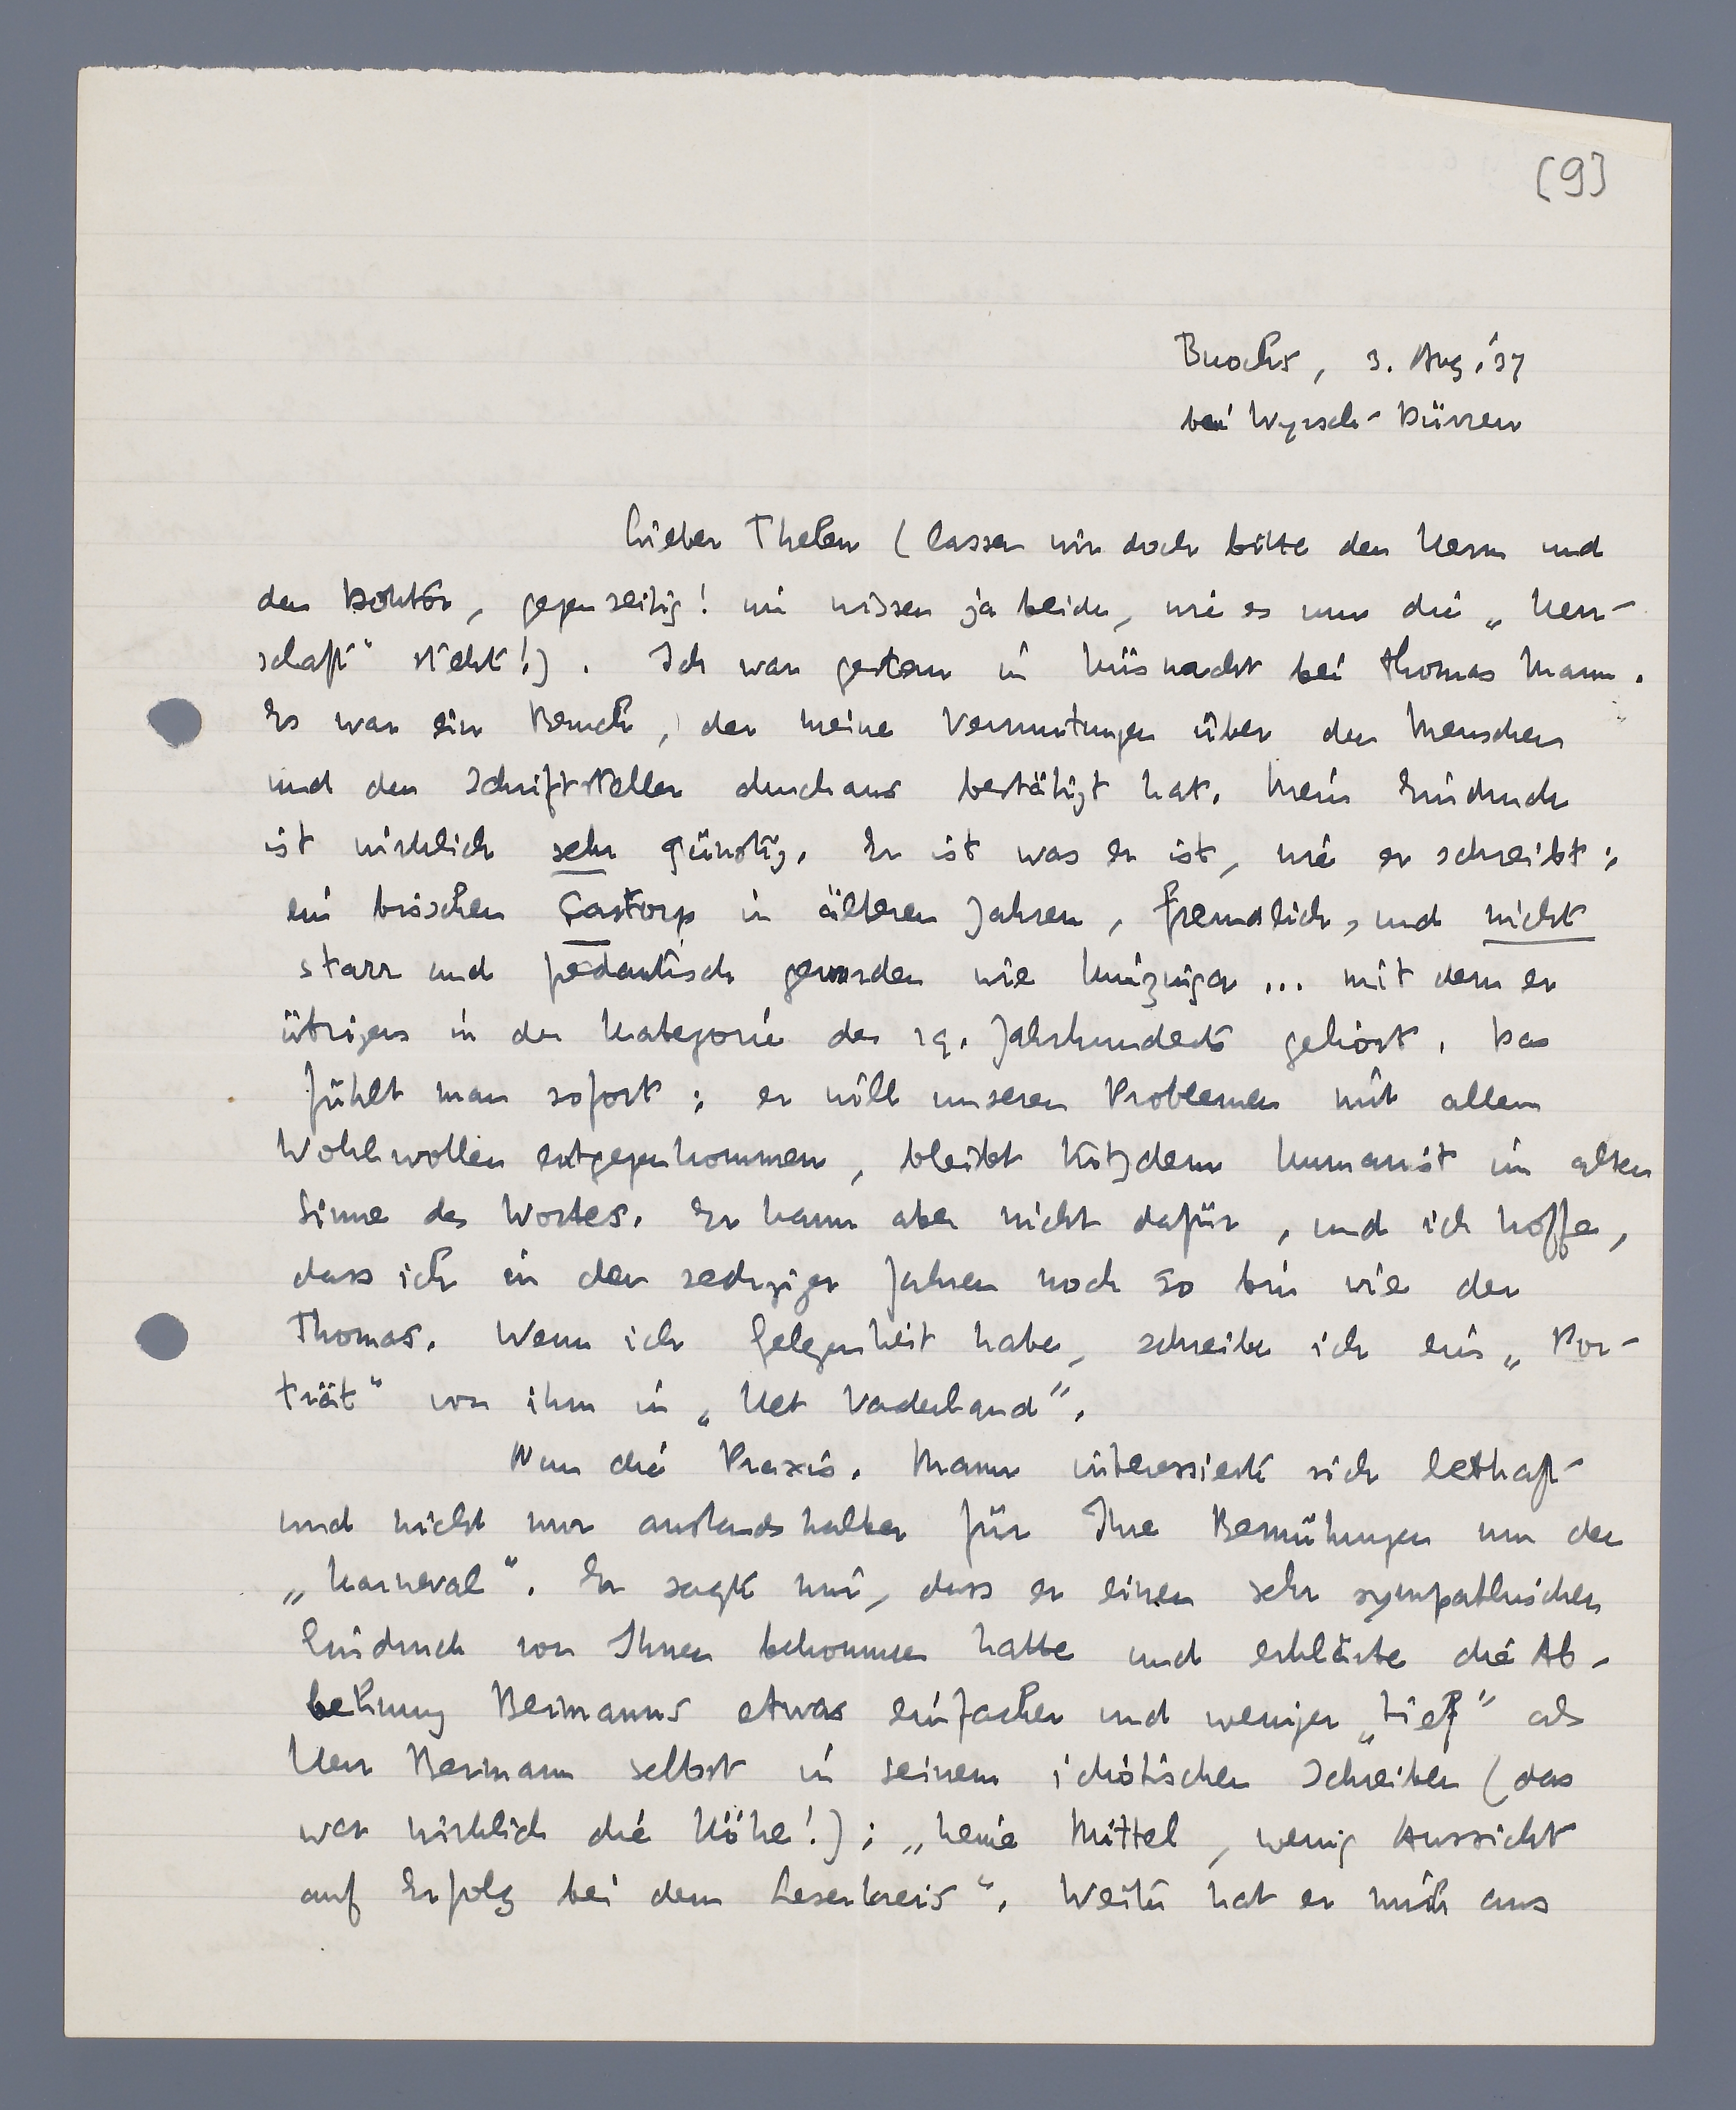 [9]
Buochs, 3. Aug. '37
bei Wyrsch-Dürrer
Lieber Thelen (lassen wir doch bitte den Herrn und
den Doktor, gegenseitig! wir wissen ja beide, wie es um die „Herr-
schaft" steht!). Ich war gestern in Küsnacht bei Thomas Mann.
Es war ein Besuch, der meine Vermutungen über den Menschen
und den Schriftsteller durchaus bestätigt hat. Mein Eindruck
ist wirklich sehr günstig. Er ist was er ist, wie er schreibt:
ein bisschen Castorp in älteren Jahren, freundlich, und nicht
starr und pedantisch geworden wie Huizinga... mit dem er
übrigens in der Kategorie des 19. Jahrhunderts gehört. Das
fühlt man sofort: er will unseren Problemen mit allem
Wohlwollen entgegenkommen, bleibt trotzdem Humanist im alten
Sinne des Wortes. Er kann aber nicht dafür, und ich hoffe,
dass ich in den sechziger Jahren noch so bin wie der
Thomas. Wenn ich Gelegenheit habe, schreibe ich ein „Por-
trät" von ihm in „Het Vaderland".
Nun die Praxis. Mann interessierte sich lebhaft
und nicht nur anstandshalber für Ihre Bemühungen um den
„Karneval". Er sagte mir, dass er einen sehr sympathischen
Eindruck von Ihnen bekommen hatte und erklärte die Ab-
lehnung Bermanns etwas einfacher und weniger „tief" als
Herr Bermann selbst in seinem idiotischen Schreiben (das
war wirklich die Höhe!): „keine Mittel, wenig Aussicht
auf Erfolg bei dem Leserkreis". Weiter hat er mich aus